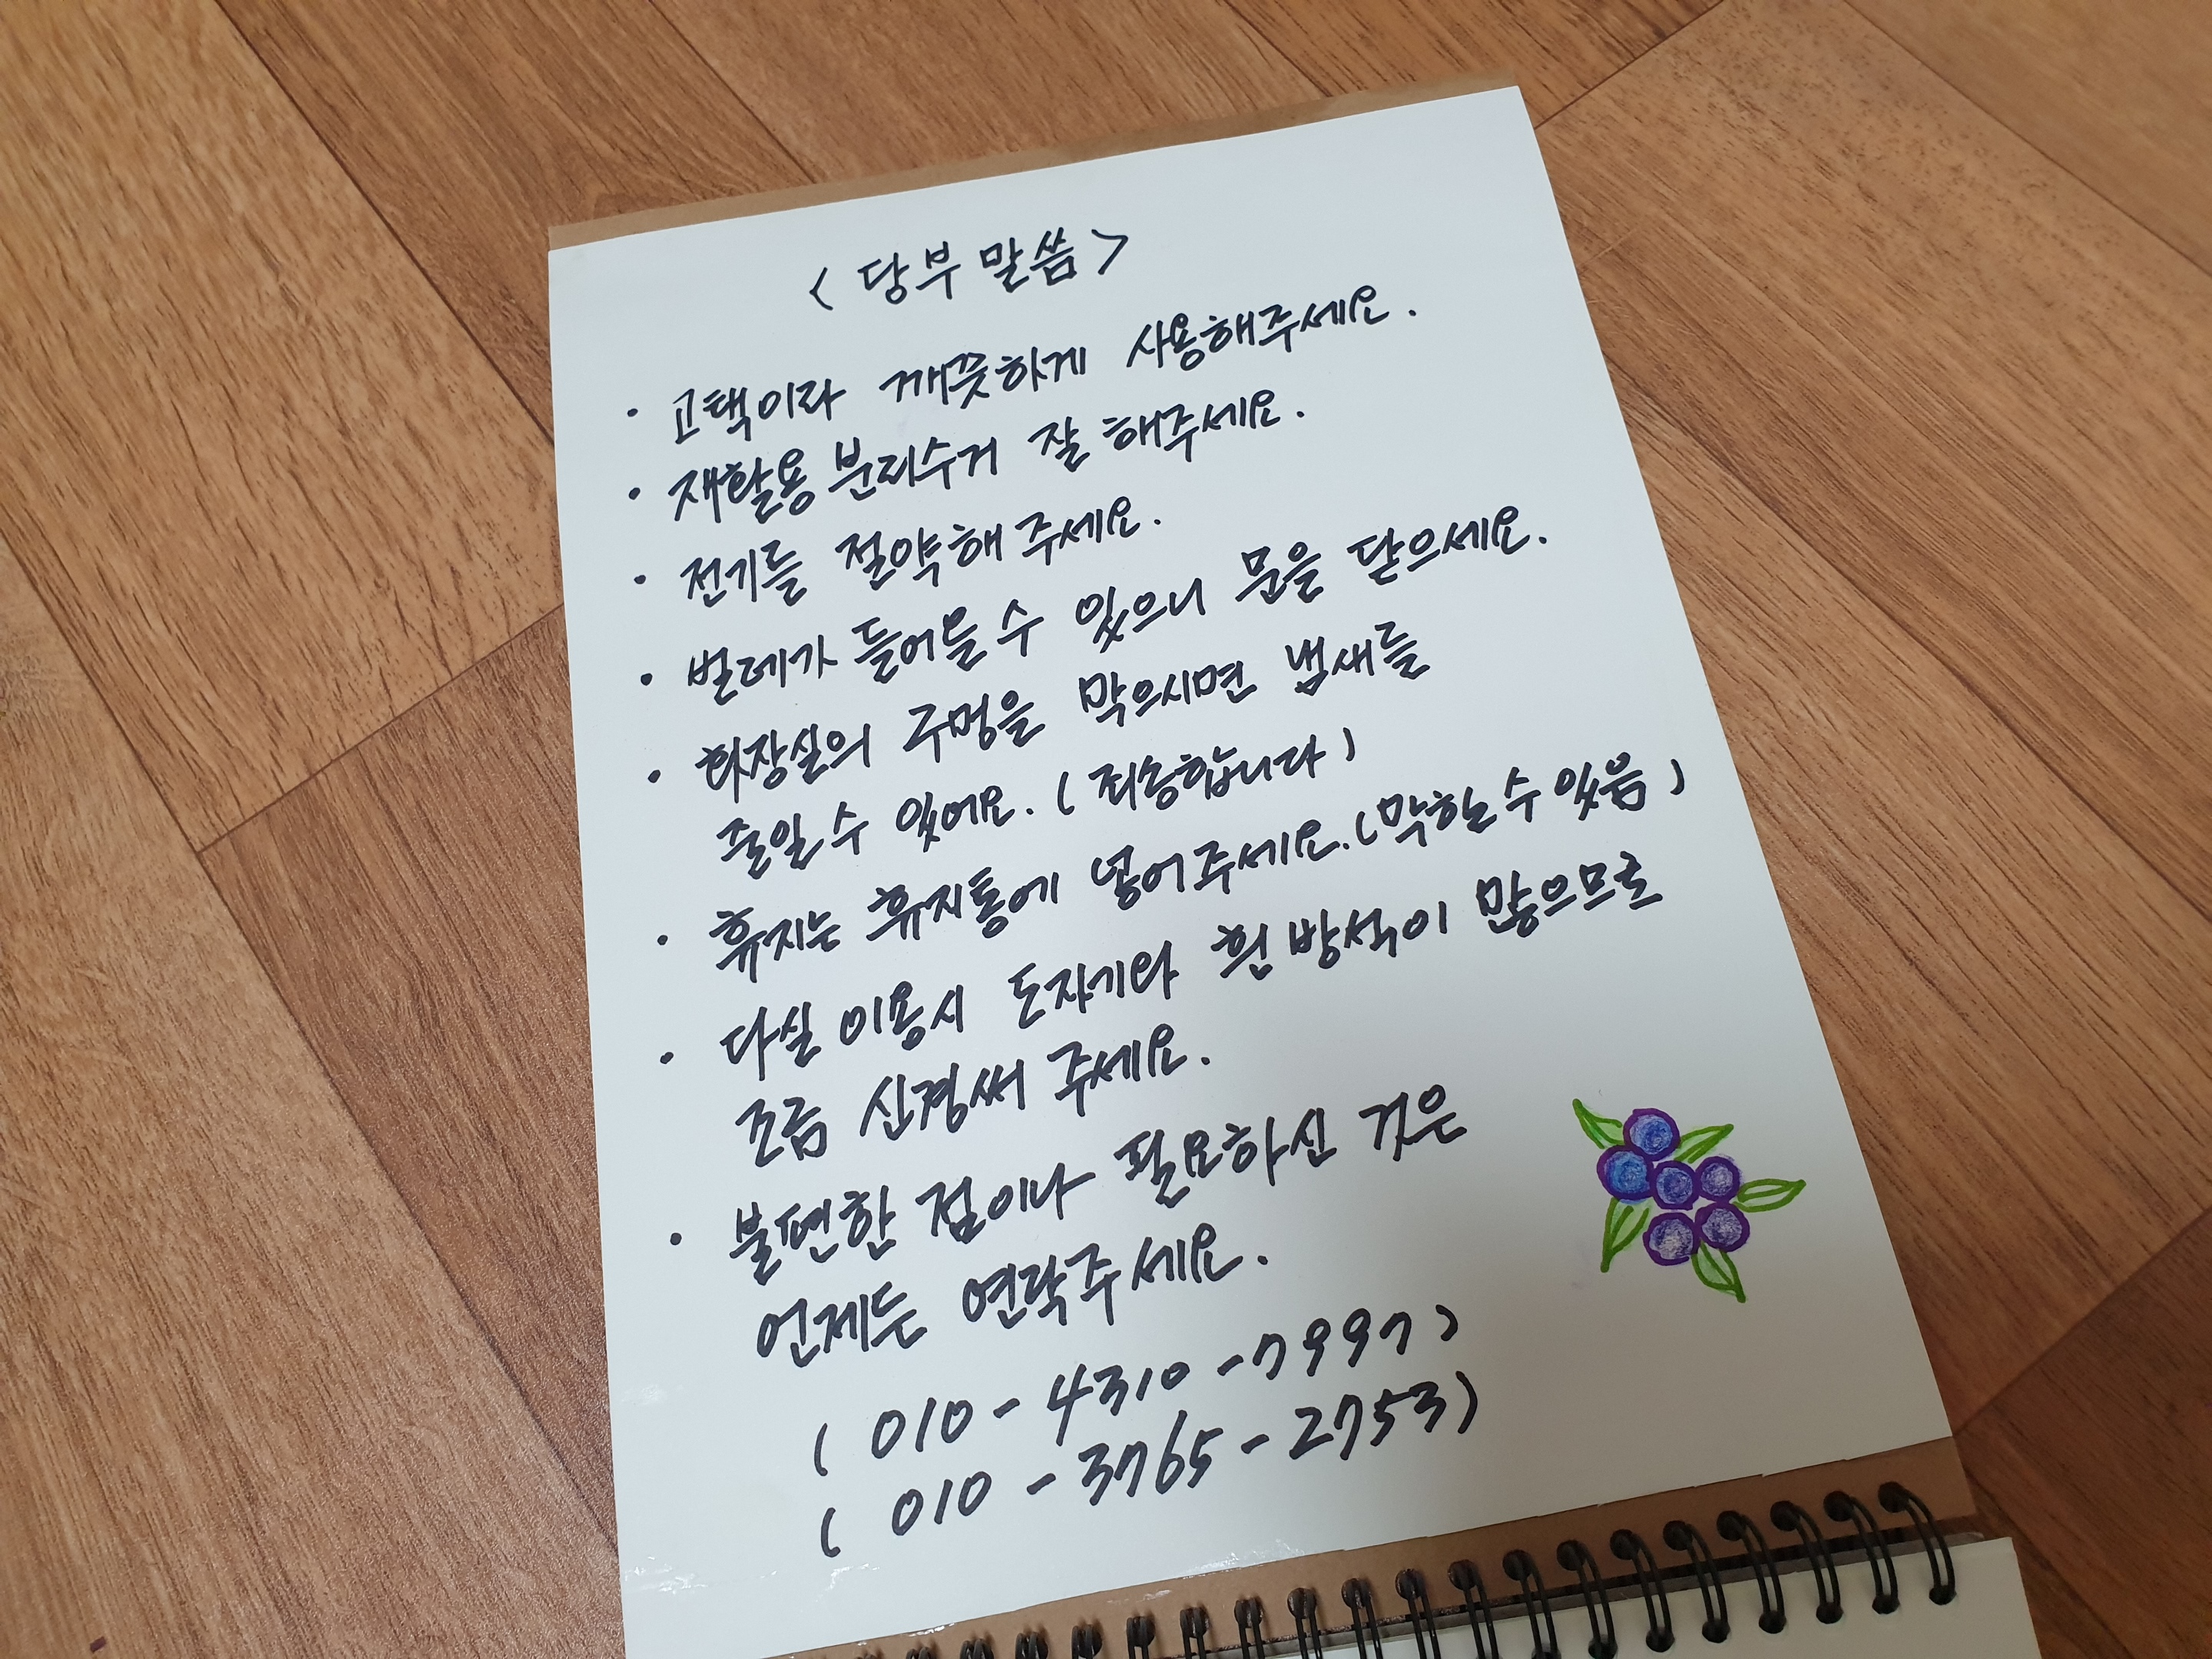 <당부 말씀>
· 고택이라 깨끗하게 사용해주세요.
· 재활용 분리수거 잘 해주세요.
· 전기를 절약해 주세요.
· 벌레가 들어올 수 있으니 문을 닫으세요.
· 화장실의 구멍을 막으시면 냄새를
줄일 수 있어요. (죄송합니다)
· 휴지는 휴지통에 넣어주세요. (막힐 수 있음)
· 다실 이용시 도자기와 흰 방석이 많으므로
조금 신경써 주세요.
· 불편한 점이나 필요하신 것은
언제든 연락주세요.
( 010 - 4310 - 7997 )
( 010 - 3765 - 2753 )